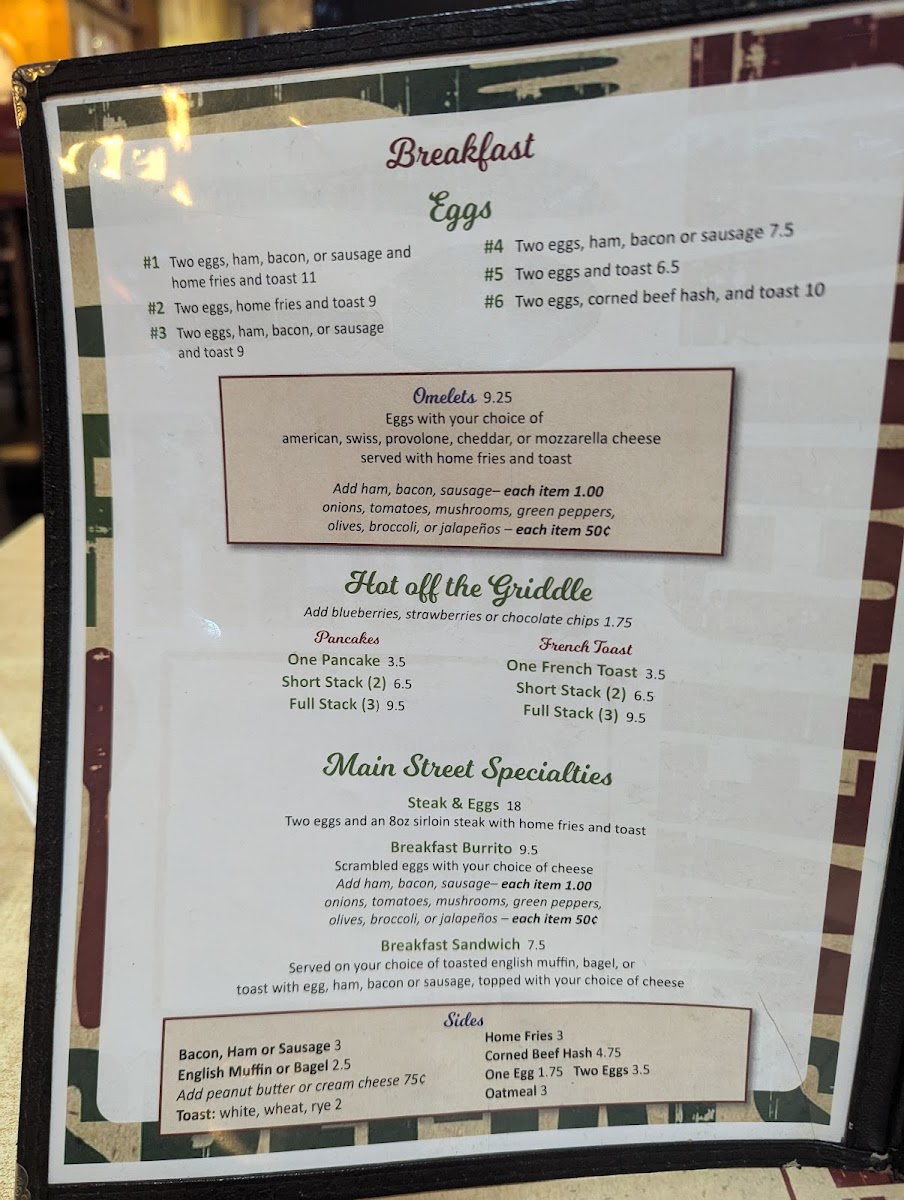 Breakfast
Eggs
#1 Two eggs, ham, bacon, or sausage and
home fries and toast 11
#2 Two eggs, home fries and toast 9
#3 Two eggs, ham, bacon, or sausage
and toast 9
#4 Two eggs, ham, bacon or sausage 7.5
#5 Two eggs and toast 6.5
#6 Two eggs, corned beef hash, and toast 10
Omelets 9.25
Eggs with your choice of
american, swiss, provolone, cheddar, or mozzarella cheese
served with home fries and toast
Add ham, bacon, sausage– each item 1.00
onions, tomatoes, mushrooms, green peppers,
olives, broccoli, or jalapeños – each item 50¢
Hot off the Griddle
Add blueberries, strawberries or chocolate chips 1.75
Pancakes
One Pancake 3.5
Short Stack (2) 6.5
Full Stack (3) 9.5
French Toast
One French Toast 3.5
Short Stack (2) 6.5
Full Stack (3) 9.5
Main Street Specialties
Steak & Eggs 18
Two eggs and an 8oz sirloin steak with home fries and toast
Breakfast Burrito 9.5
Scrambled eggs with your choice of cheese
Add ham, bacon, sausage– each item 1.00
onions, tomatoes, mushrooms, green peppers,
olives, broccoli, or jalapeños – each item 50¢
Breakfast Sandwich 7.5
Served on your choice of toasted english muffin, bagel, or
toast with egg, ham, bacon or sausage, topped with your choice of cheese
Sides
Bacon, Ham or Sausage 3
English Muffin or Bagel 2.5
Add peanut butter or cream cheese 75¢
Toast: white, wheat, rye 2
Home Fries 3
Corned Beef Hash 4.75
One Egg 1.75 Two Eggs 3.5
Oatmeal 3